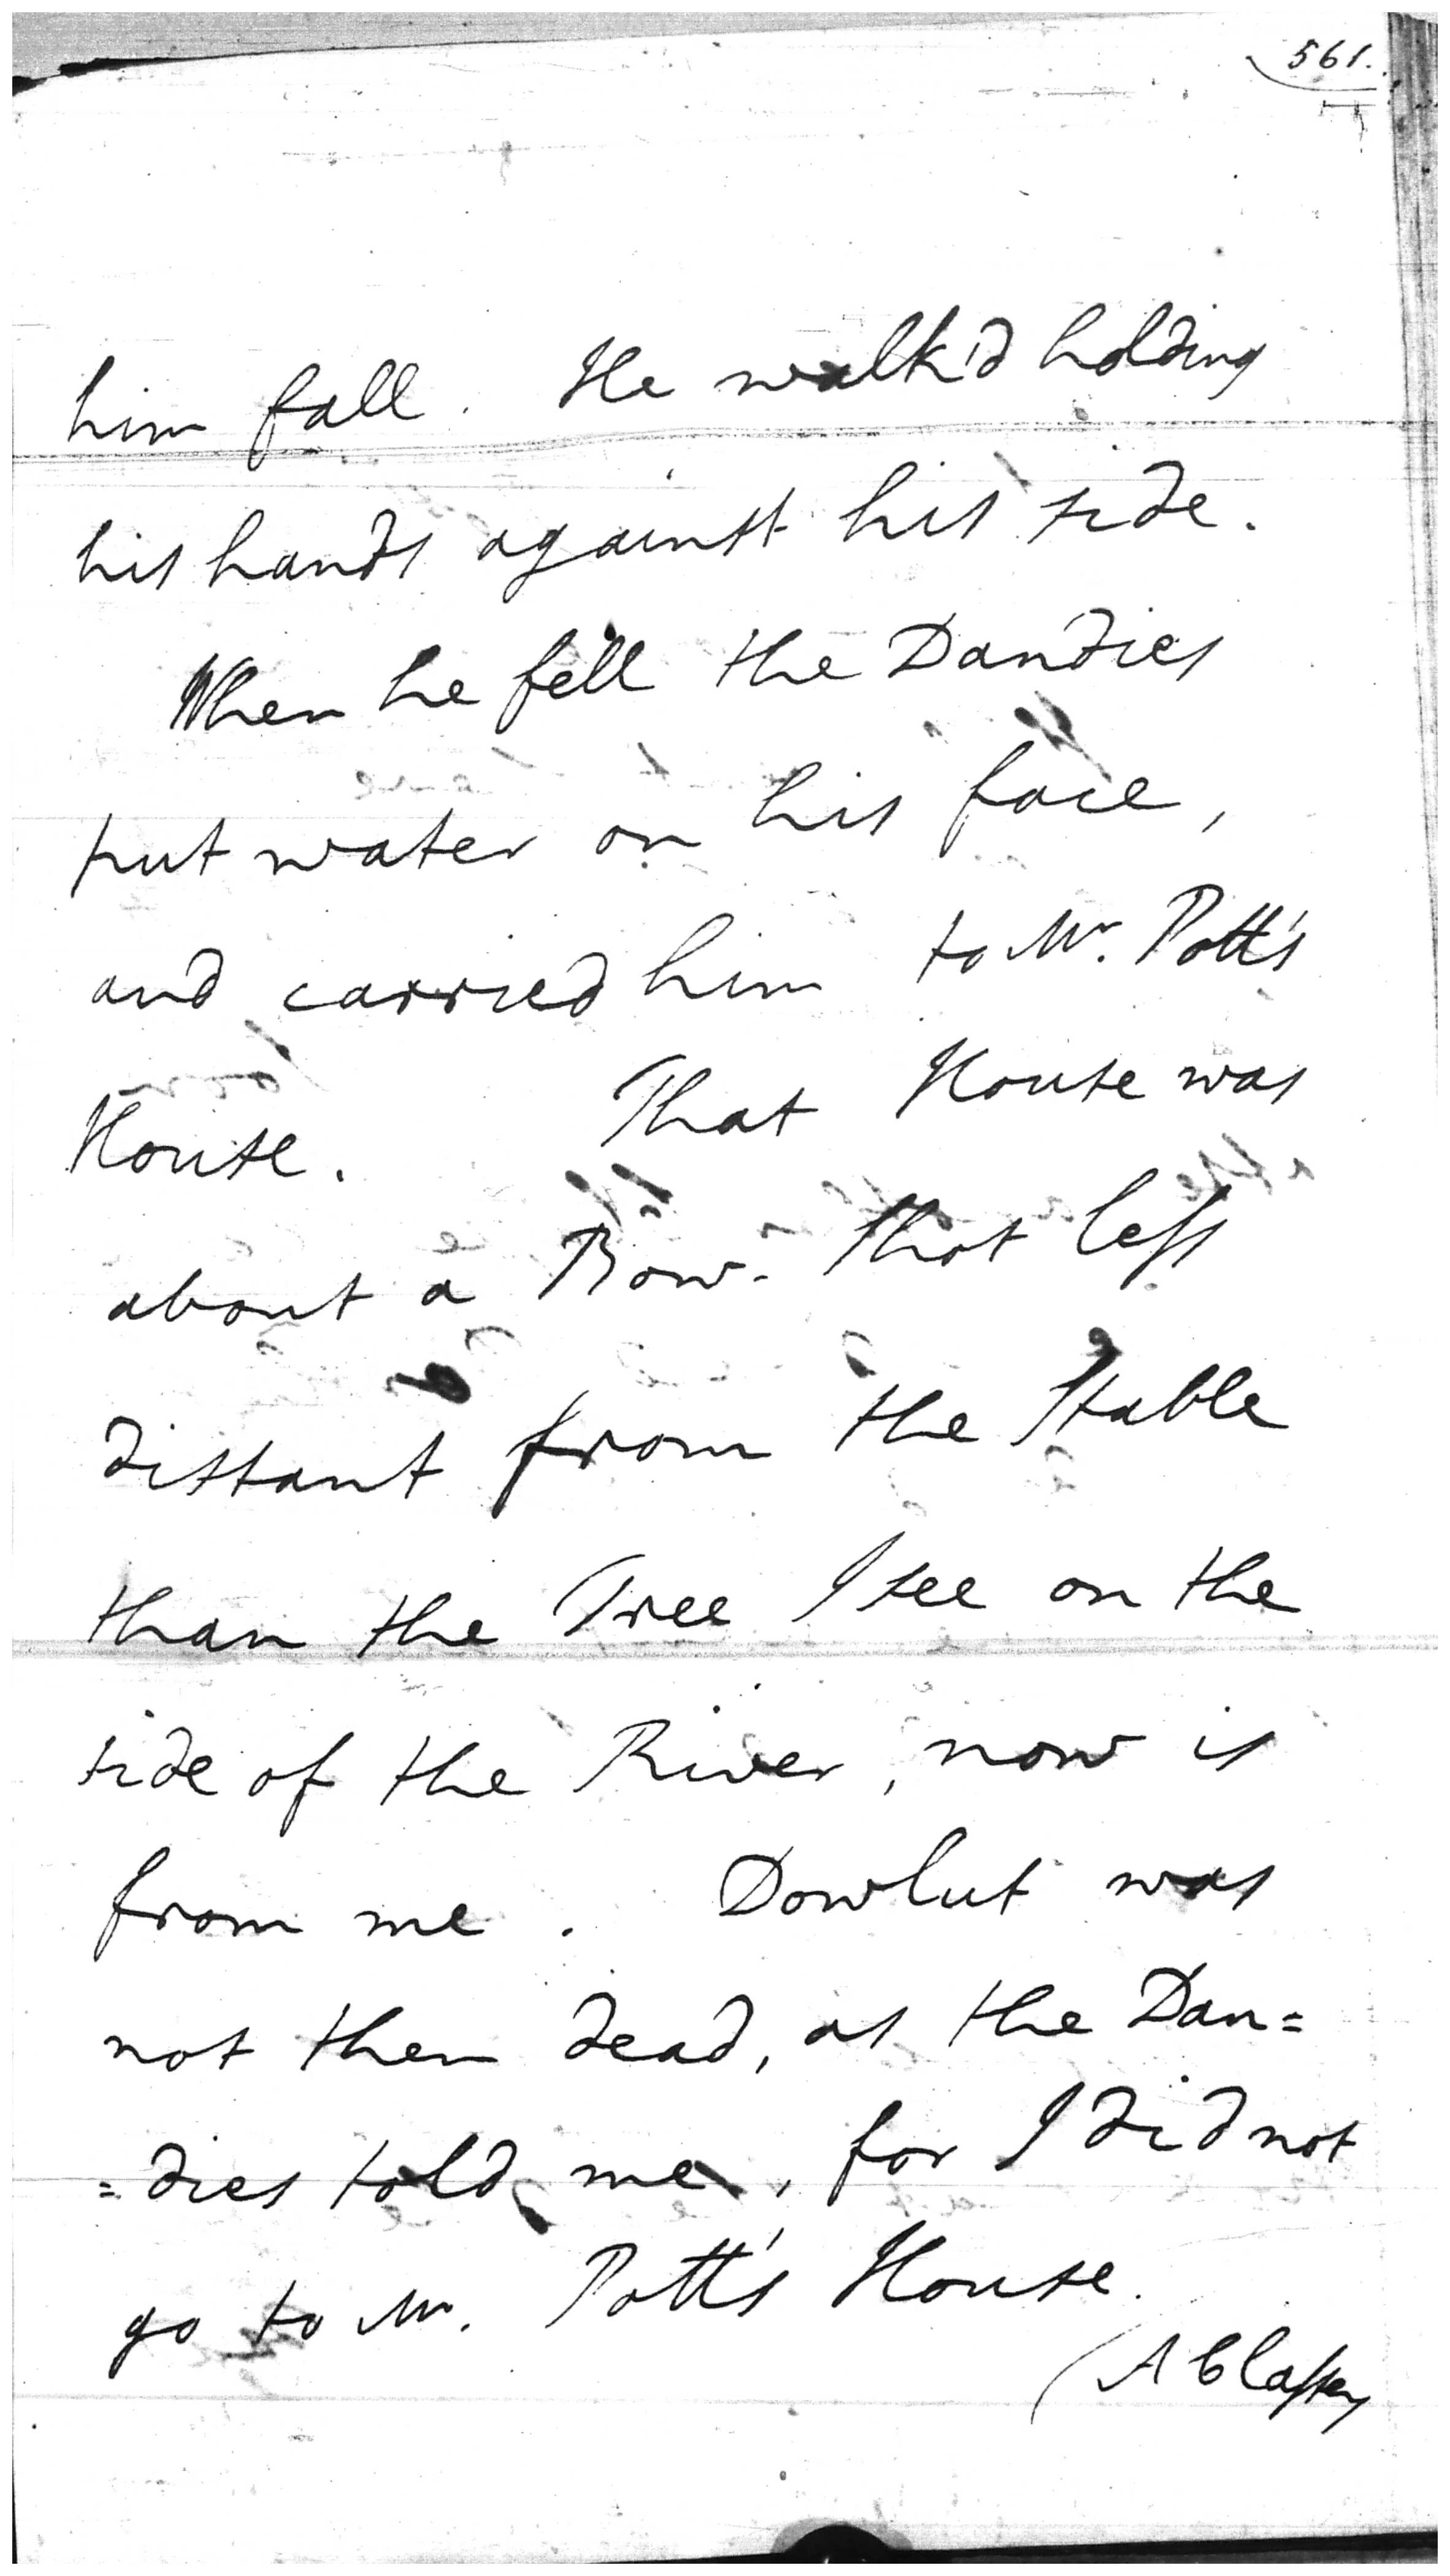 561.
him fall. He walk'd holding
his hands against his side.
When he fell the Dandies
put water on his face,
and carried him to Mr. Pott's
House. That House was
about a Bow-shot less
distant from the Stable
than the Tree I see on the
side of the River, now is
from me. Dowlut was
not then dead, as the Dan=
=dies told me, for I did not
go to Mr. Pott's House.
(A